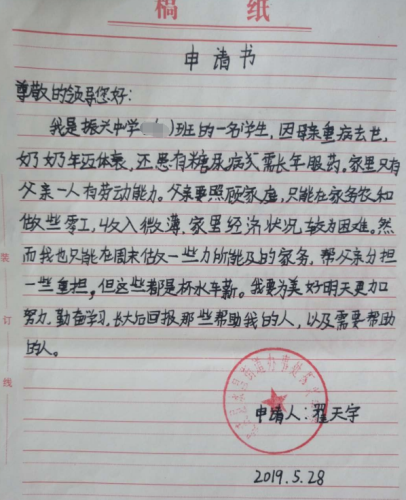 稿 纸
申请书
尊敬的领导您好:
我是振兴中学( )班的一名学生,因母亲重病去世,
奶奶年迈体衰,还患有糖尿病,需长年服药。家里又有
父亲一人有劳动能力。父亲要照顾家庭,只能在家务农和
做些零工,收入微薄,家里经济状况较为困难。然
而我也只能在周末做一些力所能及的家务,帮父亲分担
一些重担,但这些都是杯水车薪。我要为美好明天更加
努力,勤奋学习,长大后回报那些帮助我的人,以及需要帮助
的人。
装
订
线
申请人:翟天宇
2019.5.28